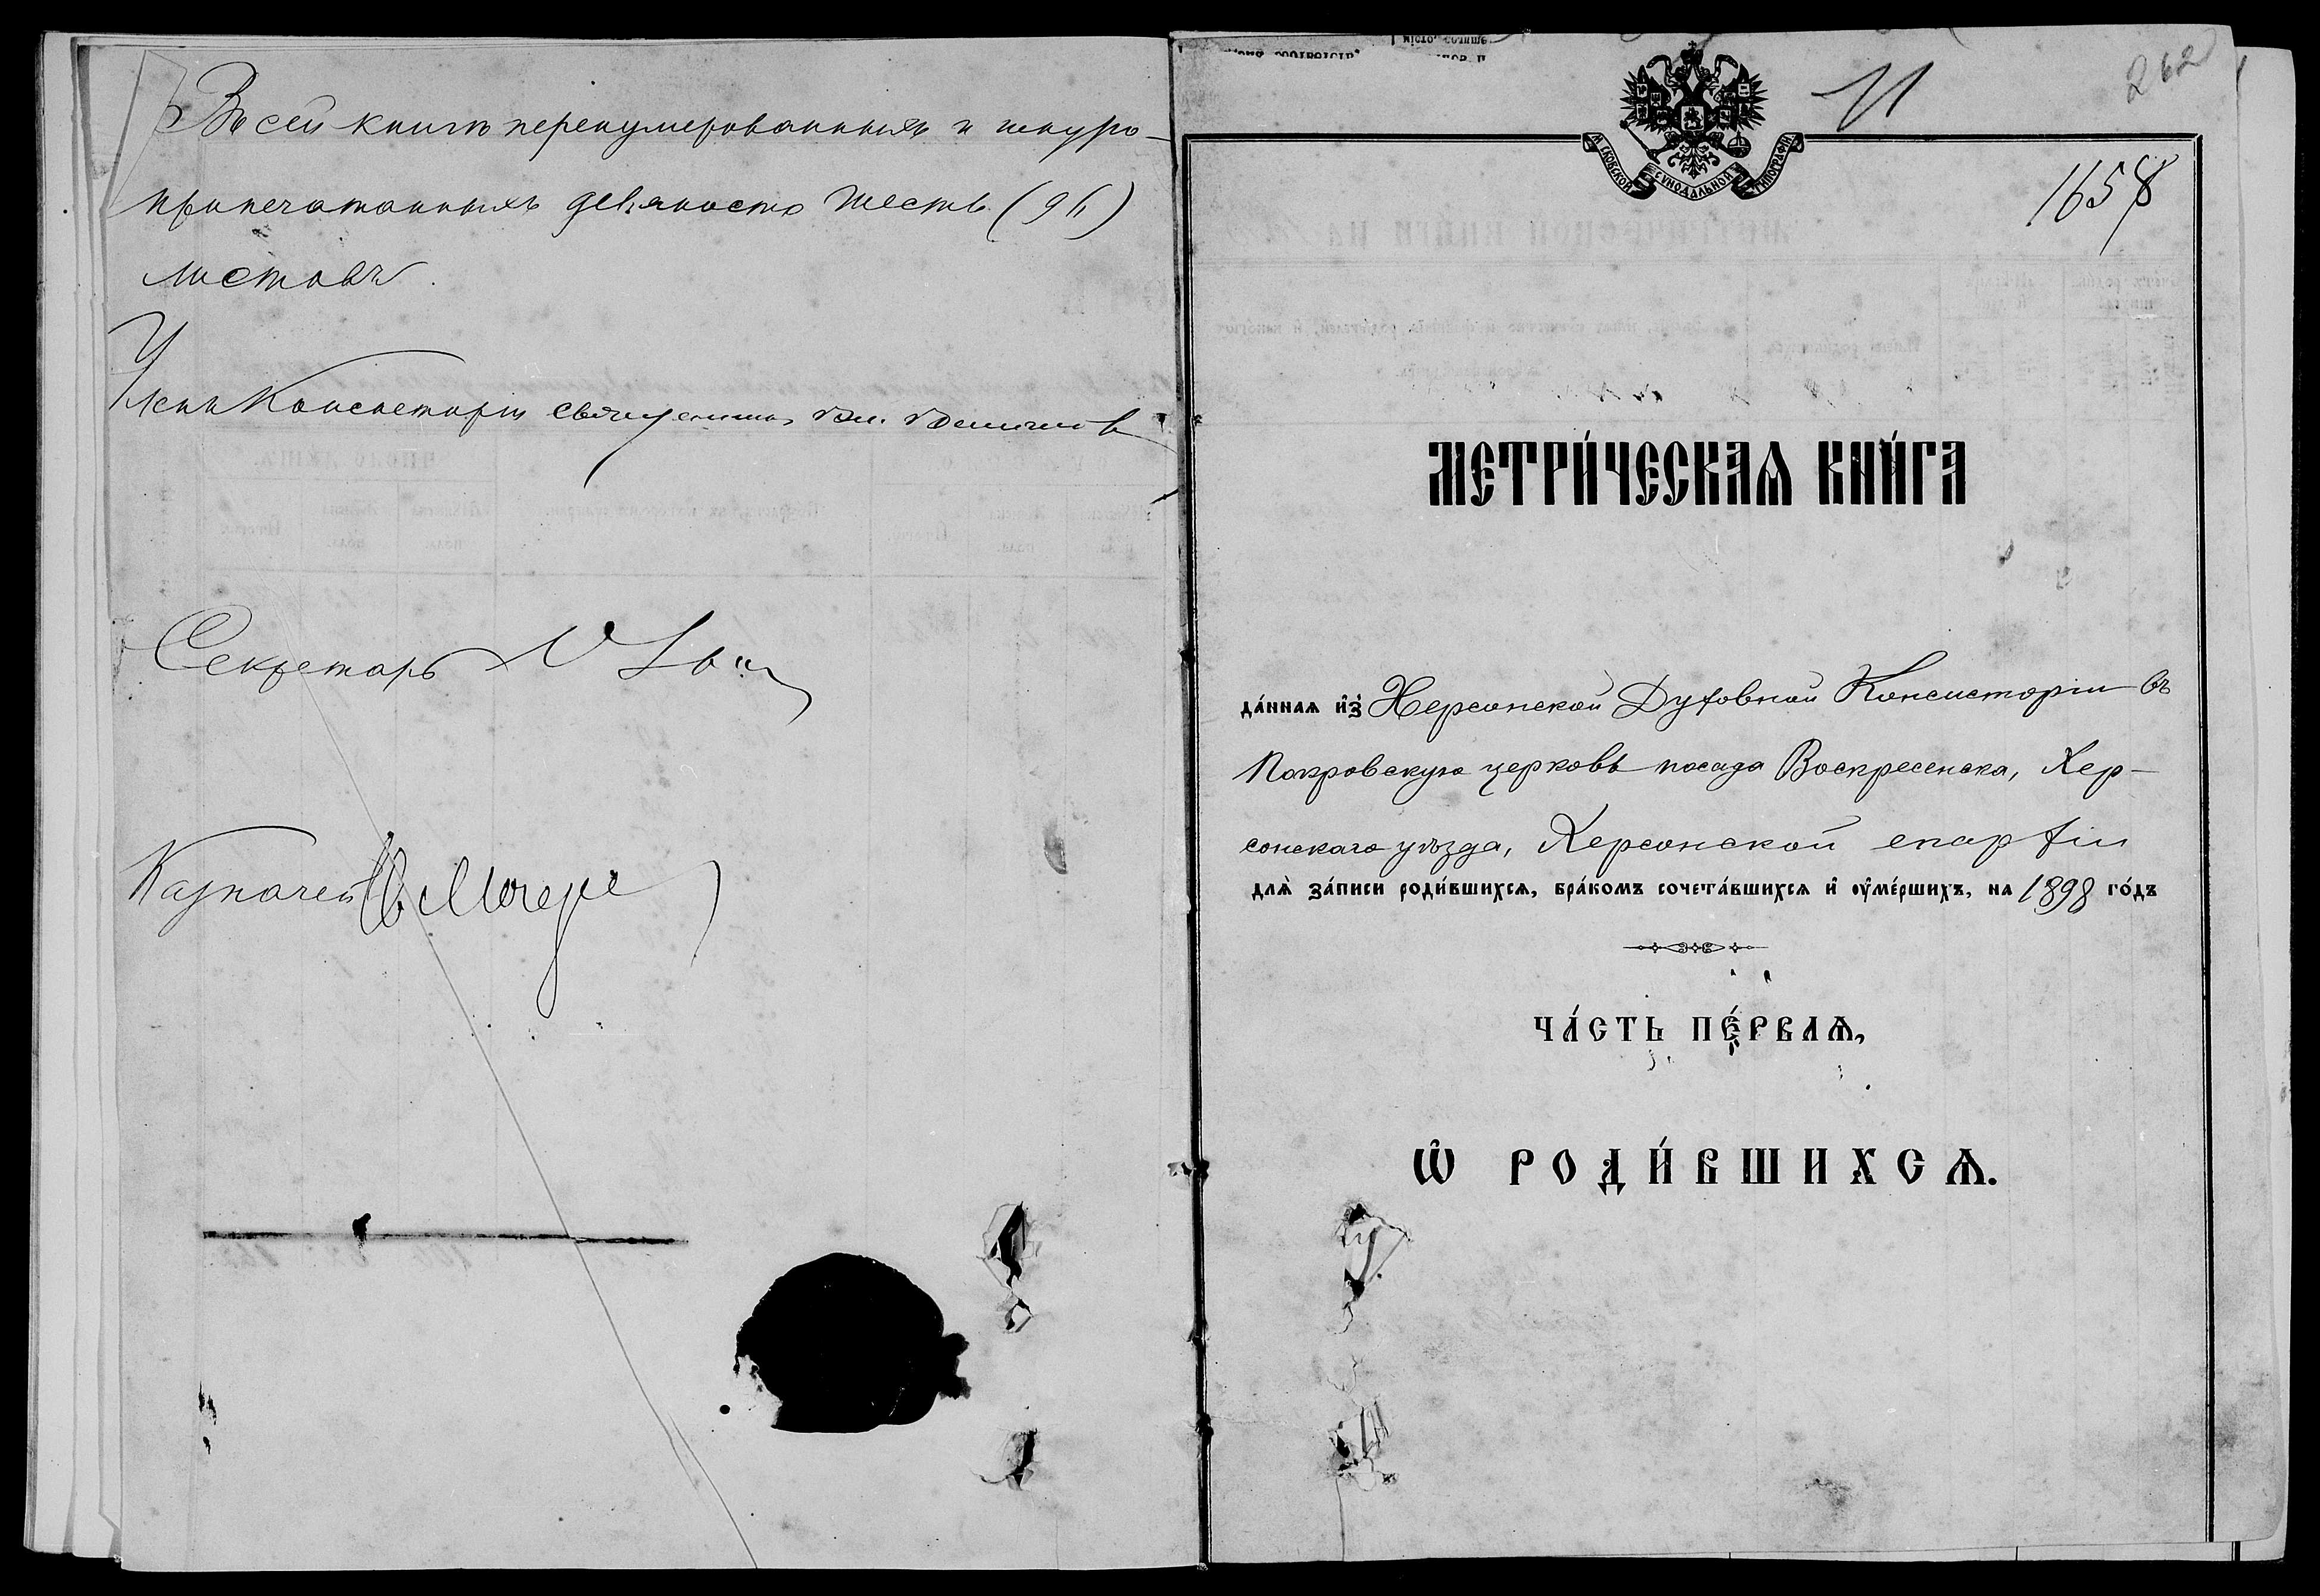 Въ сей книгѣ перенумерованныхъ и шнуро-
припечатанныхъ девяносто шесть (96)
листовъ.
Членъ Консисторіи священникъ
Секретарь
Казначей
262
11
М. СКОВСКОЙ СѴНОДАЛЬНОЙ ТИПОГРАФІИ
1658
МЕТРИ́ЧЕСКАѦ КНИ́ГА
да́ннаѧ и҆з̾ Херсонской Духовной Консисторіи въ
Покровскую церковь посада Воскресенска, Хер-
сонскаго уѣзда, Херсонской епархіи
длѧ̀ за́писи роди́вшихсѧ, бра́комъ сочета́вшихсѧ и҆ ᲂу҆ме́ршихъ, на 1898 го́дъ
ЧА́СТЬ ПЕ́РВАѦ,
Ѡ҆ РОДИ́ВШИХСѦ.